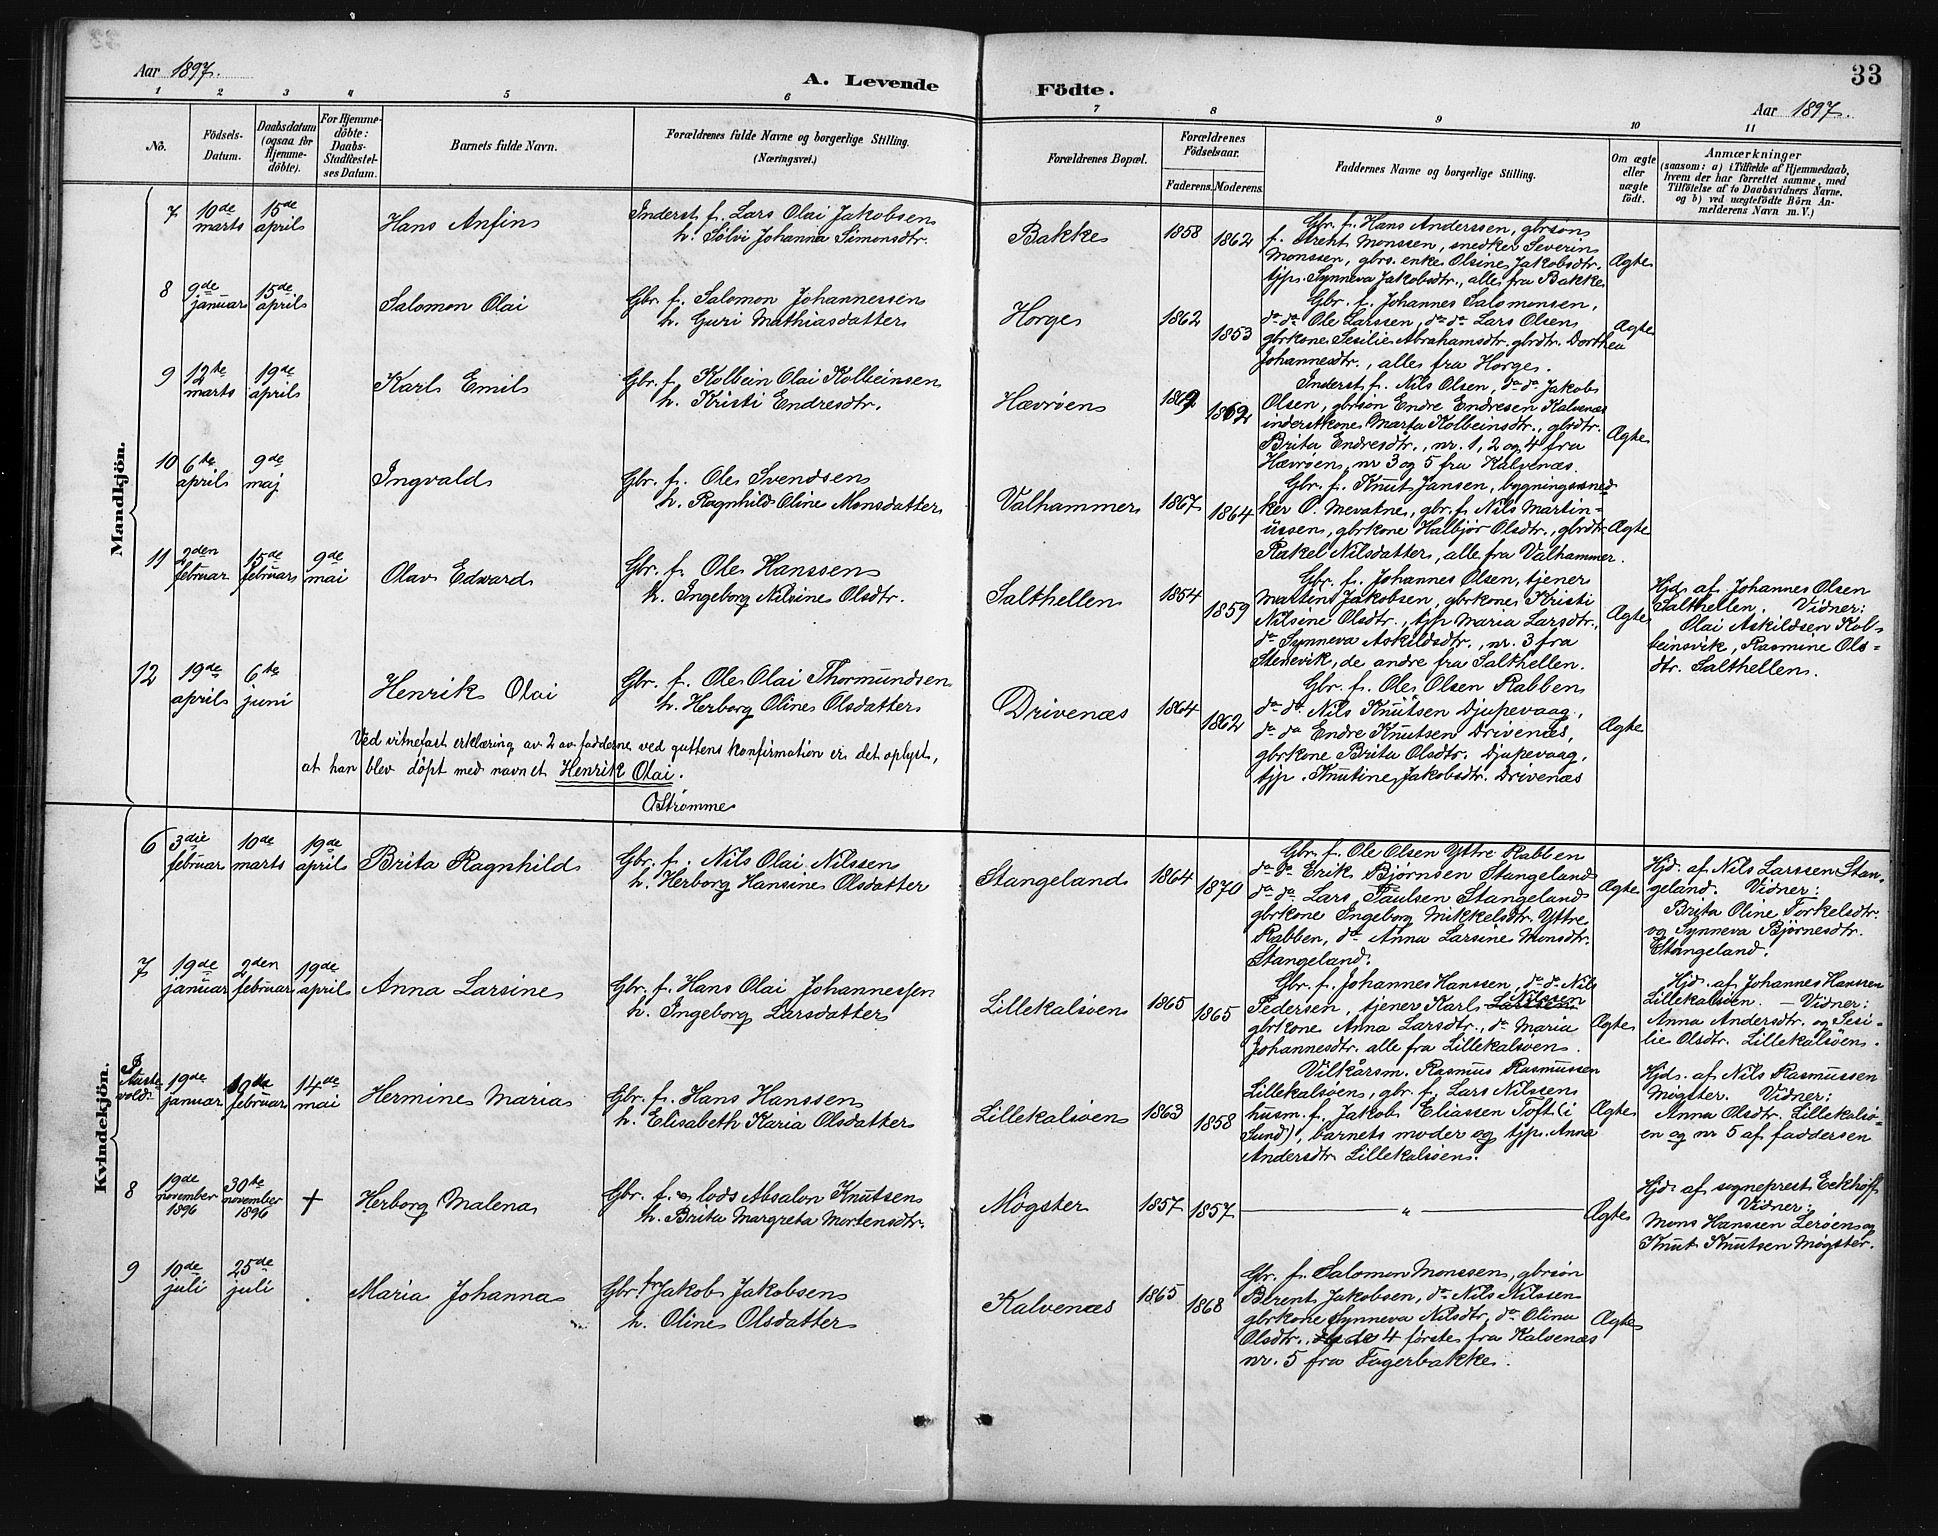 Aar 1897.
A. Levende Födte.
33
Aar 1897.
1 2 3 4 5 6 7 8 9 10 11
No.
Födsels-
Datum.
Daabsdatum
(ogsaa for
Hjemme-
döbte).
For Hjemme-
döbte:
Daabs-
Stadfæstel-
ses Datum.
Barnets fulde Navn.
Forældrenes fulde Navne og borgerlige Stilling.
(Næringsvei.)
Forældrenes Bopæl.
Forældrenes
Födselsaar.
Faderens. Moderens.
Faddernes Navne og borgerlige Stilling.
Om ægte
eller
uægte
födt.
Anmærkninger
(saasom: a) i Tilfælde af Hjemmedaab,
hvem der har forrettet samme, med
Tilföielse af to Daabsvidners Navne.
og b) ved uægtefödte Börn An-
melderens Navn m. V.)
Mandkjön.
7
10de
marts
15de
april
Hans Anfin
Inderst f. Lars Olai Jakobsen
h. Sølvi Johanna Simonsdtr.
Bakke
1858
1862
Gbr. f. Hans Anderssen, gbrsøn
f. Breht Monssen, snedker Severin
Monssen, gbrs. enke Olsine Jakobsdtr.
tjp. Synneva Jakobsdtr., alle fra Bakke
Ægte
8
9de
januar
15de
april
Salomon Olai
Gbr. f. Salomon Johannessen
h. Guri Mathiasdatter
Horge
1862
1853
Gbr. f. Johannes Salomonsen,
da da Ole Larssen, da da Lars Olsen
gbrkone Sesilie Abrahamsdtr. gbrdtr. Dorthea
Johannesdtr., alle fra Horge.
Ægte
9
12te
marts
19de
april
Karl Emil
Gbr. f. Kolbein Olai Kolbeinsen
h. Kristi Endresdtr.
Hævrøen
1869
1862
Inderst f. Nils Olsen, da da Jakob
Olsen, gbrsøn Endre Endresen Kalvenæs
inderstkone Marta Kolbeinsdtr., gbrdtr.
Brita Endresdtr., nr. 1, 2 og 4 fra
Hævrøen, nr 3 og 5 fra Kalvenæs.
Ægte
10
6te
april
9de
maj
Ingvald
Gbr. f. Ole Svendsen
h. Ragnhild Oline Monsdatter
Valhammer
1867
1864
Gbr. f. Knut Jansen, bygningssned-
ker O. Mevatne, gbr. f. Nils Martin-
ussen, gbrkone Halbjør Olsdtr., gbrdtr.
Rakel Nilsdatter, alle fra Valhammer.
Ægte
11
2den
februar
15de
februar
9de
mai
Olav Edvard
Gbr. f. Ole Hanssen
h. Ingeborg Nilsine Olsdtr.
Salthellen
1854
1859
Gbr. f. Johannes Olsen, tjener
Martin Jakobsen, gbrkone Kristi
Nilsine Olsdtr., tjp Maria Larsdtr.,
da Synneva Askildsdtr., nr. 3 fra
Stenevik, de andre fra Salthellen.
Ægte
Hjd. af Johannes Olsen
Salthellen. Vidner:
Olai Askildsen Kol-
beinsvik, Rasmine Ols-
dtr. Salthellen.
12
19de
april
6te
juni
Henrik Olai
Gbr. f. Ole Olai Thormundsen
h. Herborg Oline Olsdatter
Drivenæs
1864
1862
Gbr. f. Ole Olsen Rabben
da da Nils Knutsen Djupevaag,
da da Endre Knutsen Drivenæs,
gbrkone Brita Olsdtr. Djupevaag,
tjp. Knutine Jakobsdtr. Drivenæs
Ægte
Ved vitnefast erklæring av 2 av fadderne ved guttens konfirmation er det oplyst,
at han blev döpt med navnet Henrik Olai.
O Strømme
Kvindekjön.
6
3die
februar
10de
marts
19de
april
Brita Ragnhild
Gbr. f. Nils Olai Nilssen
h. Herborg Hansine Olsdatter
Stangeland
1864
1870
Gbr. f. Ole Olsen Yttre Rabben
da da Erik Bjørnsen Stangeland
da da Lars Paulsen Stangeland
gbrkone Ingeborg Mikkelsdtr. Yttre
Rabben, da Anna Larsine Monsdtr.
Stangeland.
Ægte
Hjd. af Nils Larssen Stan-
geland. Vidner:
Brita Oline Torkelsdtr.
og Synneva Bjørnesdtr.
Stangeland.
7
19de
januar
2den
februar
19de
april
Anna Larsine
Gbr. f. Hans Olai Johannessen
h. Ingeborg Larsdatter
Lillekalsøen
1865
1865
Gbr. f. Johannes Hanssen, da da Nils
Pedersen, tjener Karl Larssen Nilssen
gbrkone Anna Larsdtr., da Maria
Johannesdtr. alle fra Lillekalsøen.
Ægte
Hjd. af Johannes Hanssen
Lillekalsøen. – Vidner:
Anna Andersdtr. og Sesi-
lie Olsdtr. Lillekalsøen.
19de
januar
februar
14de
mai
Hermine Maria
Gbr. f. Hans Hanssen
h. Elisabeth Karia Olsdatter
Lillekalsøen
1863
1858
Vilkårsm. Rasmus Rasmussen
Lillekalsøen, gbr. f. Lars Nilssen
husm. f. Jakob Eliassen Toft (i
Sund), barnets moder og tjp. Anna
Andersdtr Lillekalsøen.
Ægte
Hjd. af Nils Rasmussen
Møgster. Vidner:
Anna Olsdtr. Lillekalsø-
en og nr 5 af faddersen
8
19de
november
1896
30te
november
1896
+
Herborg Malena
Gbr. f. o lods Absalon Knutsen
h. Brita Margreta Mortensdtr.
Møgster
1857
1857
— „ —
Ægte
Hjd. af sogneprest Eckhoff
Vidner:
Mons Hanssen Lerøen og
Knut Knutsen Møgster.
9
10de
juli
25de
juli
Maria Johanna
Gbr. f. Jakob Jakobsen
h. Oline Olsdatter
Kalvenæs
1865
1868
Gbr. f. Salomon Monssen, gbrsøn
Berent Jakobsen, da Nils Nilssen
gbrkone Synneva Nilsdtr, da Olina
Olsdtr. de 4 første fra Kalvenæs
nr. 5 fra Fagerbakke.
Ægte